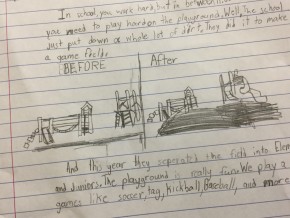 In school, you work hard, but in
you need to play hard on the playground. Well, the school
just put down a whole lot of dirt, They did it to make
a game field.
BEFORE
After
And this year they seperate the field into Elem
and Juniors. The playground is really fun. We play a
games like soccer, tag, kickball, Baseball, and more